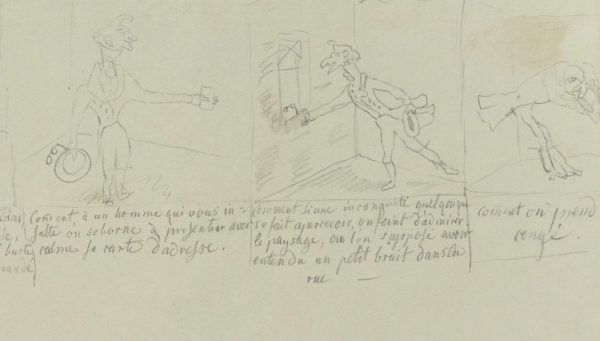 Coment, à un homme qui vous in-
sulte on se borne à presenter avec
calme sa carte d'adresse.
Comment si une incongruité quelqonque
se fait apercevoir, on feint d'admirer
le paysage, ou l'on suppose avoir
entendu un petit bruit dans la
rue —
coment on prend
congé.